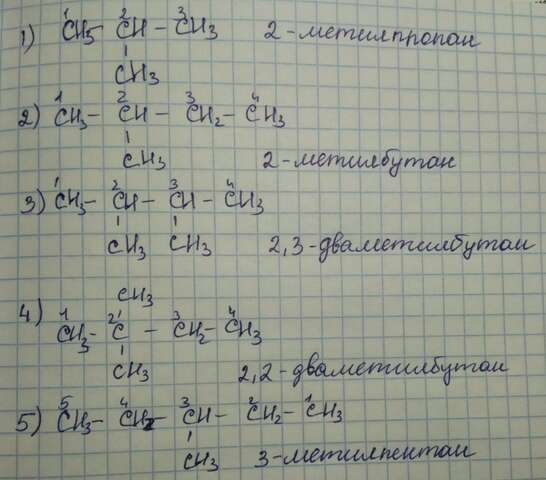 1) ¹CH₃ – ²CH – ³CH₃ 2-метилпропан
|
CH₃
2) ¹CH₃ – ²CH – ³CH₂ – ⁴CH₃
|
CH₃ 2-метилбутан
3) ¹CH₃ – ²CH – ³CH – ⁴CH₃
| |
CH₃ CH₃ 2,3-дваметилбутан
CH₃
|
4) ¹CH₃ – ²C – ³CH₂ – ⁴CH₃
|
CH₃ 2,2-дваметилбутан
5) ⁵CH₃ – ⁴CH₂ – ³CH – ²CH₂ – ¹CH₃
|
CH₃ 3-метилпентан